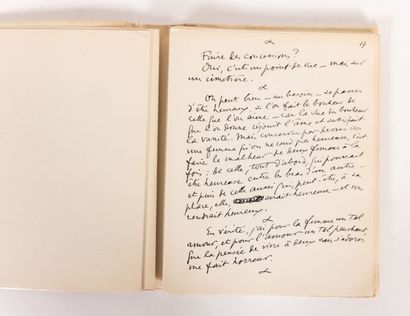 17
Faire des concessions?
Oui, c'est un point de vue – mais sur
un cimetière.
On peut bien – au besoin – se passer
d'être heureux si l'on fait le bonheur de
celle que l'on aime – car la vue du bonheur
que l'on donne réjouit l'âme et satisfait
la vanité. Mais conserver par dessus soi
une femme qu'on ne rend pas heureuse, c'est
faire le malheur de deux femmes à la
fois: de celle, tout d'abord, qui pourrait
être heureuse entre les bras d'un autre –
et puis de celle aussi qui, peut-être, à sa
place, elle, serait heureuse – et vous
rendrait heureux.
En vérité, j'ai pour la femme un tel
amour, et pour l'amour un tel penchant,
que la pensée de vivre à deux sans s'adorer
me fait horreur.